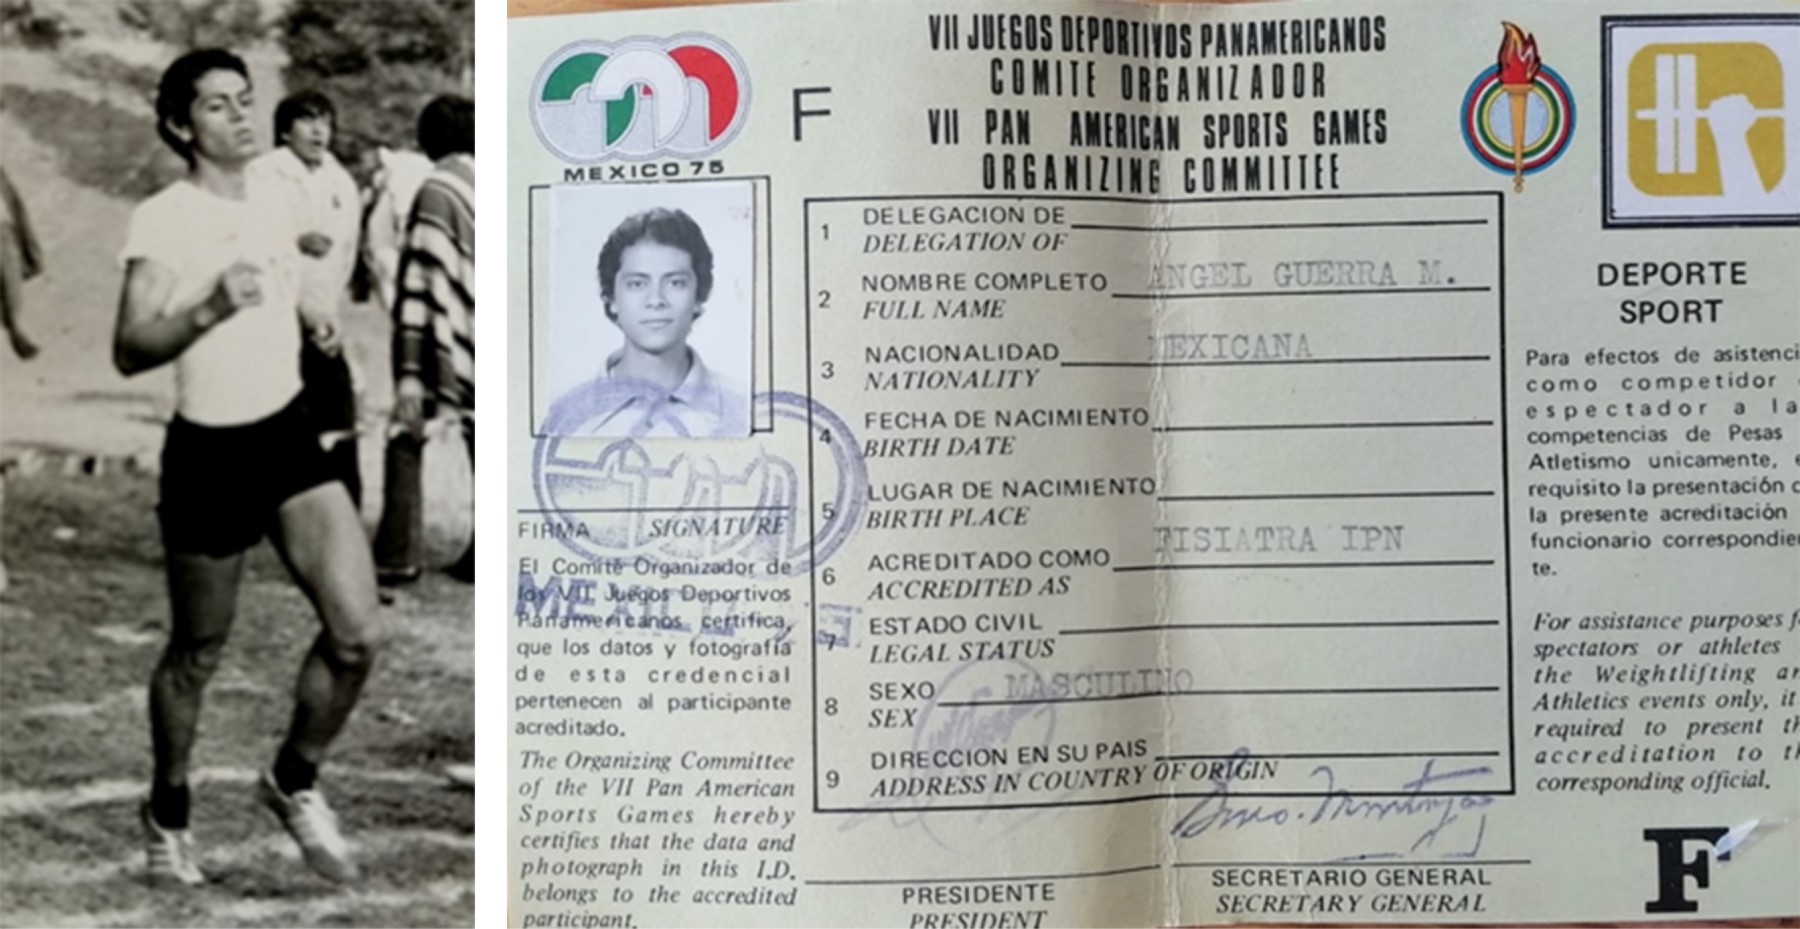 MEXICO 75
F
VII JUEGOS DEPORTIVOS PANAMERICANOS
COMITE ORGANIZADOR
VII PAN AMERICAN SPORTS GAMES
ORGANIZING COMMITTEE
FIRMA SIGNATURE
El Comité Organizador de
los VII Juegos Deportivos
Panamericanos certifica,
que los datos y fotografía
de esta credencial
pertenecen al participante
acreditado.
The Organizing Committee
of the VII Pan American
Sports Games hereby
certifies that the data and
photograph in this I.D.
belongs to the accredited
participant.
MEXICO
1 DELEGACION DE
DELEGATION OF
2 NOMBRE COMPLETO ANGEL GUERRA M.
FULL NAME
3 NACIONALIDAD MEXICANA
NATIONALITY
4 FECHA DE NACIMIENTO
BIRTH DATE
5 LUGAR DE NACIMIENTO
BIRTH PLACE
6 ACREDITADO COMO FISIATRA IPN
ACCREDITED AS
7 ESTADO CIVIL
LEGAL STATUS
8 SEXO MASCULINO
SEX
9 DIRECCION EN SU PAIS
ADDRESS IN COUNTRY OF ORIGIN
PRESIDENTE
PRESIDENT
SECRETARIO GENERAL
SECRETARY GENERAL
DEPORTE
SPORT
Para efectos de
como competidor
espectador a
competencias de Pesas
Atletismo unicamente,
requisito la presentación
la presente acreditación
funcionario
te.
For assistance purposes
spectators or athletes
the Weightlifting
Athletics events only,
required to present
accreditation to
corresponding official.
F